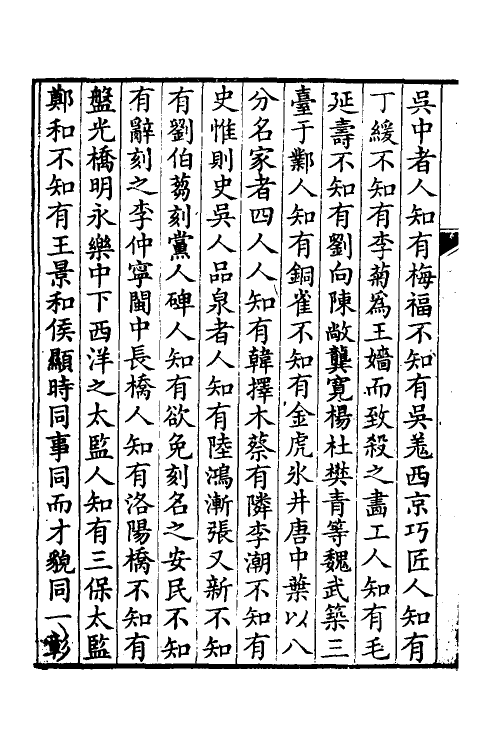 吳中者人知有梅福不知有吳羗西京巧匠人知有
丁緩不知有李菊爲王嬙而致殺之畵工人知有毛
延壽不知有劉向陳敞龔寛楊杜樊青等魏武築三
臺于鄴人知有銅雀不知有金虎氷井唐中葉以八
分名家者四人人知有韓擇木蔡有隣李潮不知有
史惟則史吳人品泉者人知有陸鴻漸張又新不知
有劉伯芻刻黨人碑人知有欲免刻名之安民不知
有辭刻之李仲寧閩中長橋人知有洛陽橋不知有
盤光橋明永樂中下西洋之太監人知有三保太監
鄭和不知有王景和侯顯時同事同而才貌同一彰